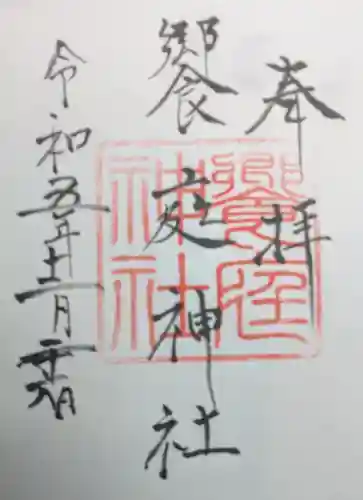 奉拝
饗庭神社
饗庭神社
令和五年十一月二十六日